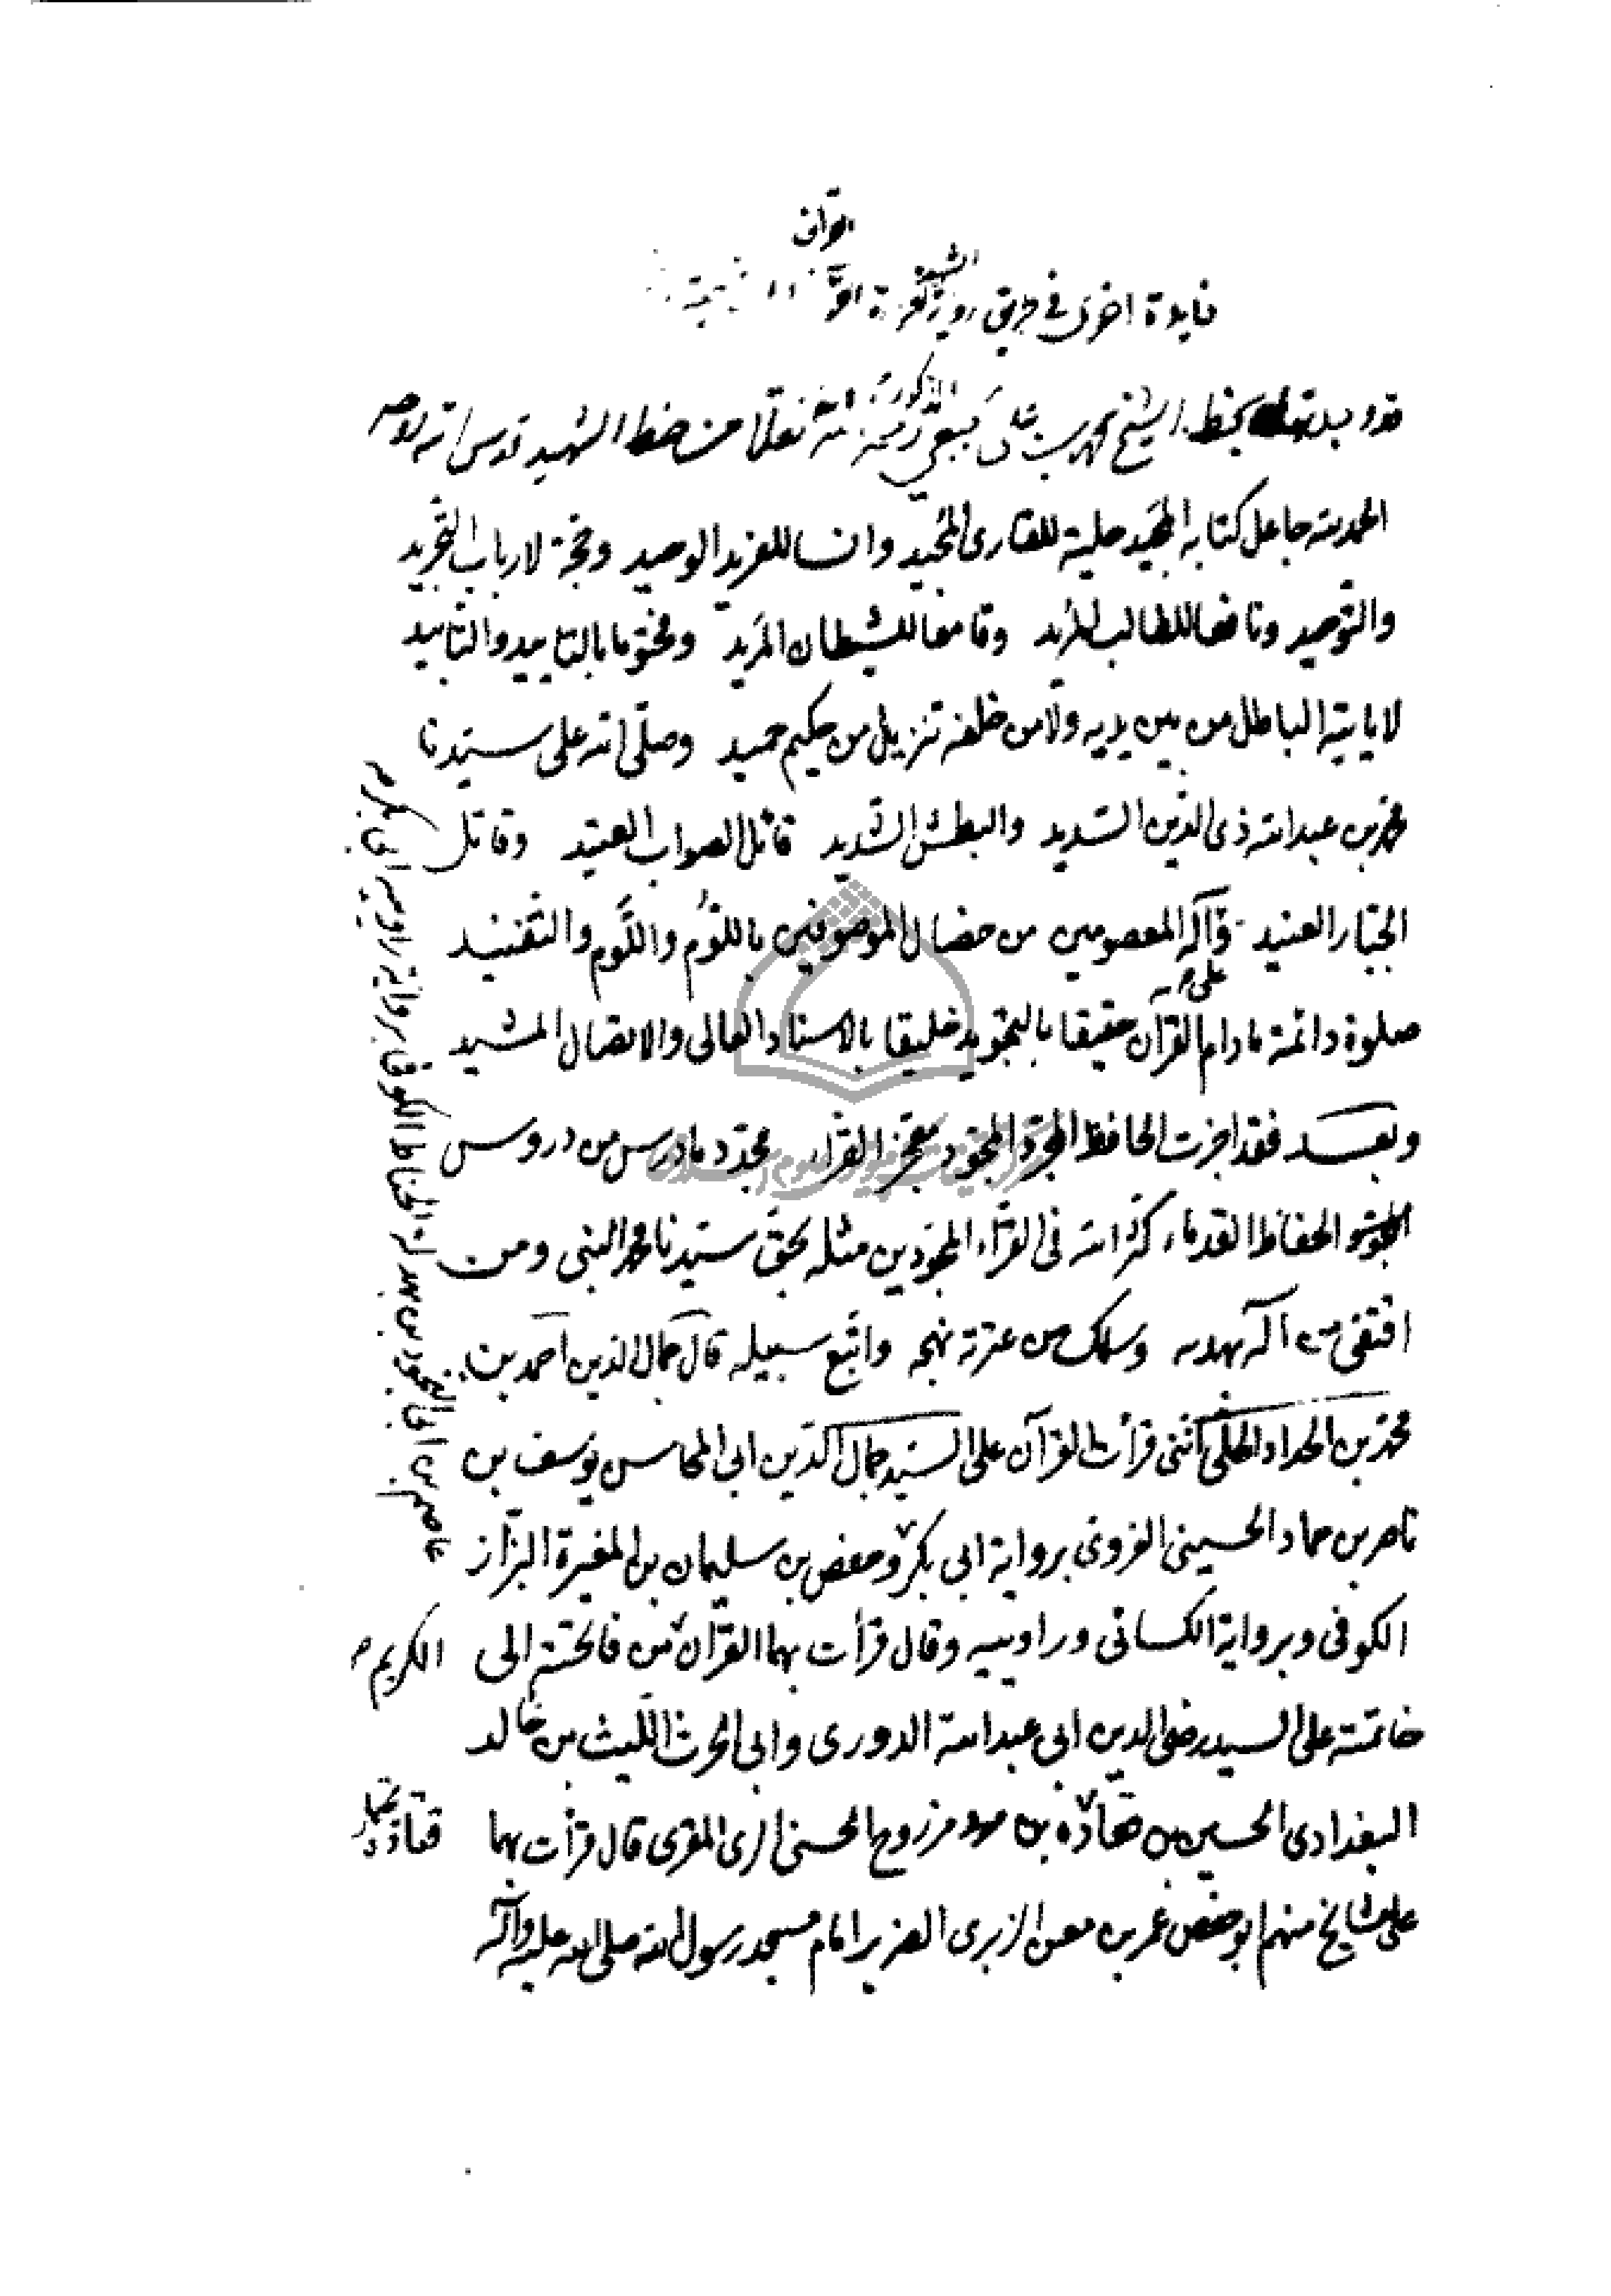 القرآن
فايدة اخرى في طريق رواية الشيعة
قد وجدتها بخط الشيخ محمد بن علي الجبعي المذكور نقلا من خط الشهيد قدس الله روحه
الحمد لله جاعل كتابه المجيد حلية للقارئ المجيد وانسا للفريد الوحيد وحجة لارباب التجريد
والتوحيد ونافعا للطالب المريد وقامعا للشيطان المريد ومختوما بالتاييد والتابيد
لا ياتيه الباطل من بين يديه ولا من خلفه تنزيل من حكيم حميد وصلى الله على سيدنا
محمد بن عبد الله ذي الدين السديد والبطش الشديد قائل الصواب العتيد وقاتل
الجبار العنيد وآله المعصومين من خصال الموصوفين باللؤم واللوم والتفنيد
صلوة دائمة ما دام القرآن حقيقا بالتجويد خليقا بالاسناد العالي والاتصال المشيد
وبعد فقد اجزت الحافظ المجرد المجود مفخر القراء مجدد ما درس من دروس
الحفاظ القدماء كثر الله في القراء المجودين مثله بحق سيدنا محمد النبي ومن
اقتفى من آله بهديه وسلك من عترته نهجه واتبع سبيله قال جمال الدين احمد بن
محمد بن الحداد الحلي انني قرات القرآن على السيد جمال الدين ابي المحاسن يوسف بن
ناصر بن حماد الحسيني الغروي برواية ابي بكر وحفص بن سليمان بن المغيرة البزاز
الكوفي وبرواية الكسائي وراوييه وقال قرات بهما القرآن من فاتحته الى
خاتمته على السيد رضي الدين ابي عبد الله الدوري وابي الحرث الليث بن خالد
البغدادي الحسين بن قتادة بن مزروع الحسني المقري قال قرات بهما
على مشايخ منهم ابو حفص عمر بن معن الزبري الضرير امام مسجد رسول الله صلى الله عليه وآله
عاصم بن ابي النجود بن بهدلة الحناط الكوفي برواية راوييه ابي بكر
الكريم
قتادة